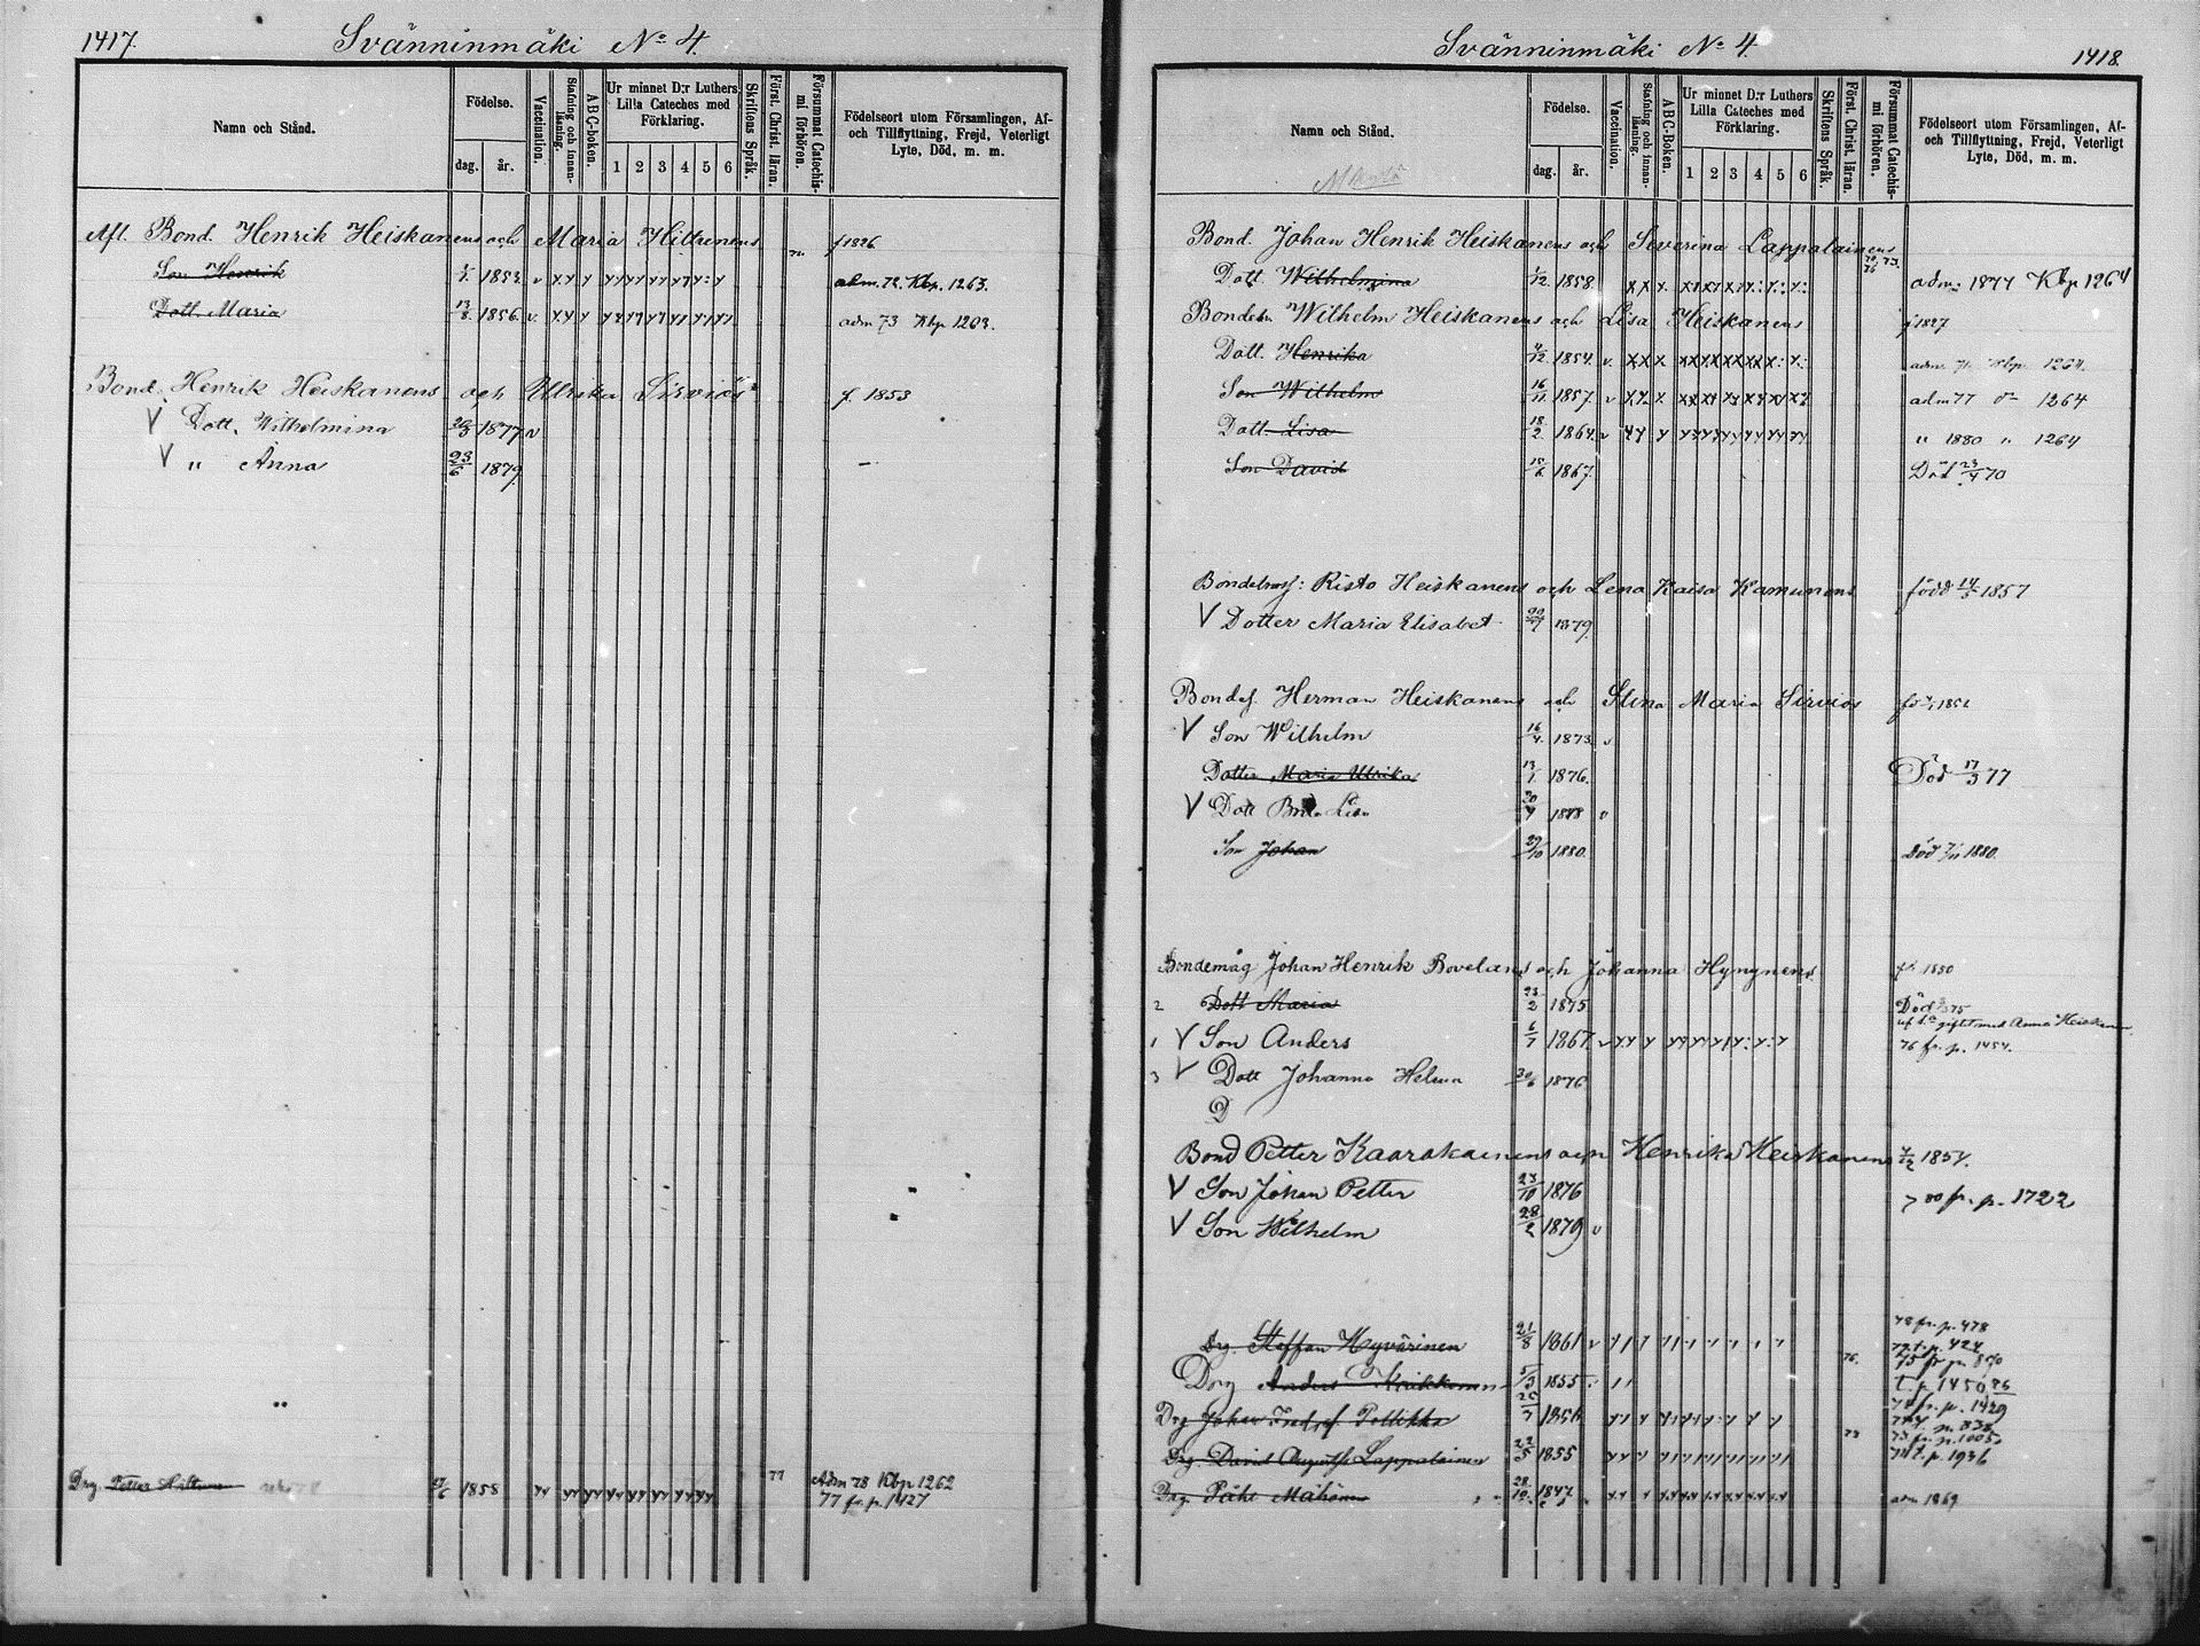 1417.
Svänninmäki No 4.
Namn och Stånd.
Födelse.
dag.
år.
Vaccination.
Stafning och innan-läsning.
A B C-boken.
Ur minnet D:r Luthers Lilla Cateches med Förklaring.
1 2 3 4 5 6
Skriftens Språk.
Först. Christ. läran.
Försummat Catechis-mi förhören.
Födelseort utom Församlingen, Af- och Tillflyttning, Frejd, Veterligt Lyte, Död, m. m.
Afl. Bond. Henrik Heiskanens och Maria Hiltunens f 1826
Son Henrik 1853. adm. 72. Kbp. 1263.
Dott. Maria 13/8. 1856. adm 73 Kbp 1263.
Bond. Henrik Heiskanens och Ulrika Sirviös f. 1853
V Dott. Wilhelmina 20/3 1877 v
V " Anna 23/6 1879 —
Drg. Petter Hiltunen 1858 77 Adm 78 Kbp 1262
77 fr. p. 1427
Svänninmäki No 4.
1418.
Namn och Stånd.
Födelse.
dag.
år.
Vaccination.
Stafning och innan-läsning.
A B C-boken.
Ur minnet D:r Luthers Lilla Cateches med Förklaring.
1 2 3 4 5 6
Skriftens Språk.
Först. Christ. läran.
Försummat Catechis-mi förhören.
Födelseort utom Församlingen, Af- och Tillflyttning, Frejd, Veterligt Lyte, Död, m. m.
Bond. Johan Henrik Heiskanens och Severina Lappalainens
Dott. Wilhelmina 1/12. 1858. adm: 1877 Kbp 1264
Bondebr. Wilhelm Heiskanens och Lisa Heiskanens f 1827
Dott. Henrika 4/12. 1854. v. Kbp. 1264.
Son Wilhelm 16/11. 1857. v adm 77 1264
Dott. Lisa 18/2. 1864. v " 1880 " 1264
Son David 15/6. 1867. Död 23/4 70
Risto Heiskanens och Lena Kaisa Kamunens född 14/5 1857
V Dotter Maria Elisabet 1879.
Bondes. Herman Heiskanens och Stina Maria Sirviös 1852
V Son Wilhelm 16/4. 1873. v
Dotter Maria Ulrika 13/1. 1876. Död 17/3 77
V Dott Lisa 1878 v
Son Johan 29/10 1880. Död 1880.
Bondemåg Johan Henrik Bovelans och Johanna Hynynens 1850
2 Dott Maria 23/2 1875 Död 75
gift med Anna Heiskanen
1 V Son Anders 6/7 1867. v 76 fr. p. 1454.
3 V Dott Johanna Helena 30/6 1876
D
Bond Petter Kaarakainens och Henrika Heiskanens 4/12 1854.
V Son Johan Petter 23/10 1876 80 fr. p. 1722
V Son Wilhelm 28/2 1879 v
78 fr. p. 478
Drg. Steffan Hyvärinen 21/8 1861 v 77 t. p. 424
Drg Anders 5/3 1855 76. t. p. 1450
Drg Johan 1856 fr. p. 1429
Drg. David August Lappalainen 22/5 1855 73 t. p. 1936
Drg. Påhl Mähönen 28/10. 1847. adm 1869